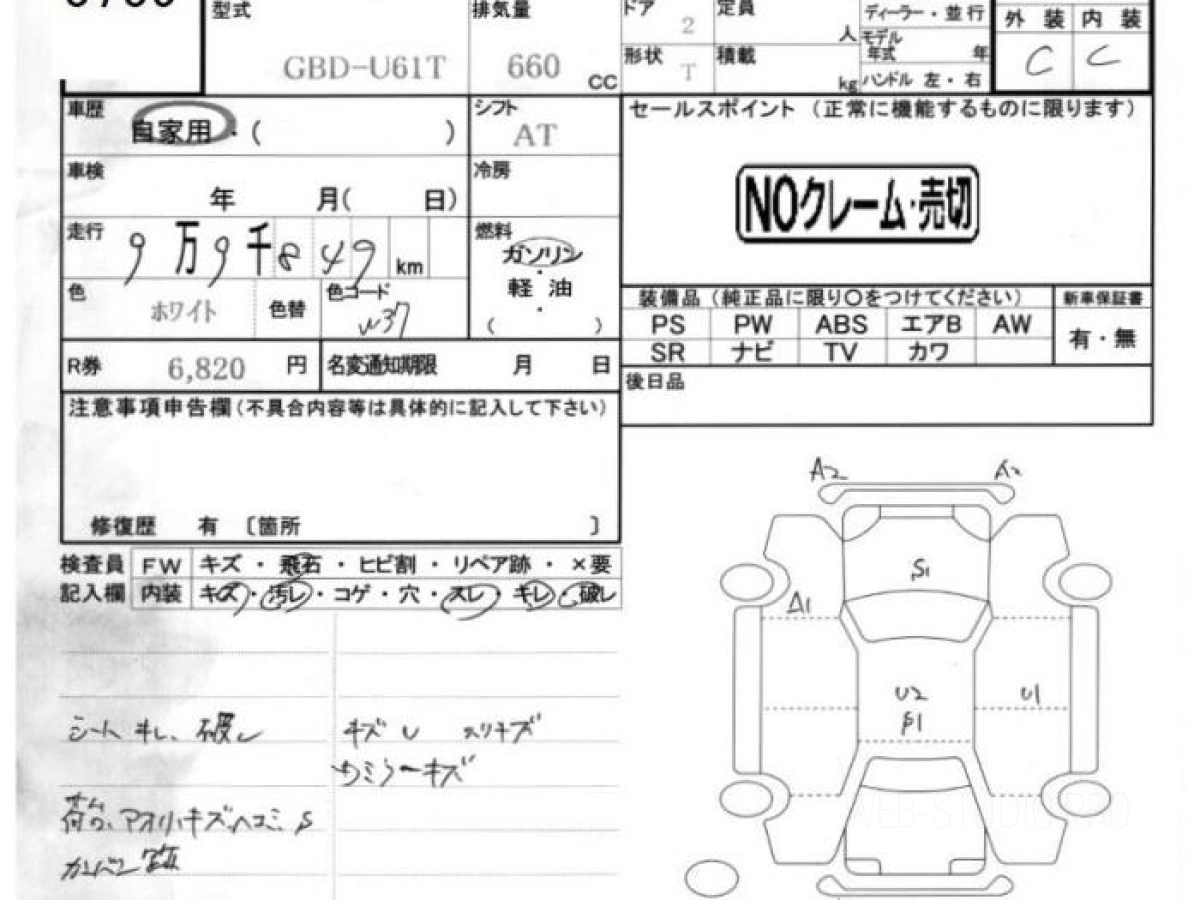 型式 GBD-U61T
排気量 660 CC
ドア 2
定員 人
形状 T
積載 kg
ディーラー・並行
モデル年式 年
ハンドル 左・右
外装 内装
C C
車歴 自家用・( )
シフト AT
車検 年 月( 日)
冷房
走行 9万9千849 km
燃料 ガソリン・軽油・( )
色 ホワイト 色替
色コード W37
R券 6,820 円
名変通知期限 月 日
セールスポイント(正常に機能するものに限ります)
NOクレーム・売切
装備品(純正品に限り〇をつけてください) 新車保証書
PS PW ABS エアB AW 有・無
SR ナビ TV カワ
後日品
注意事項申告欄(不具合内容等は具体的に記入して下さい)
修復歴 有 〔箇所 〕
検査員 FW キズ・飛石・ヒビ割・リペア跡・×要
記入欄 内装 キズ・汚レ・コゲ・穴・スレ・キレ・破レ
シート キレ、破レ
キズ U スリキズ
ミラーキズ
荷台、アオリ、キズ、ヘコミ、S
A2 A2
S1
A1
U2 U1
S1
WEB-STUDIO.PRO